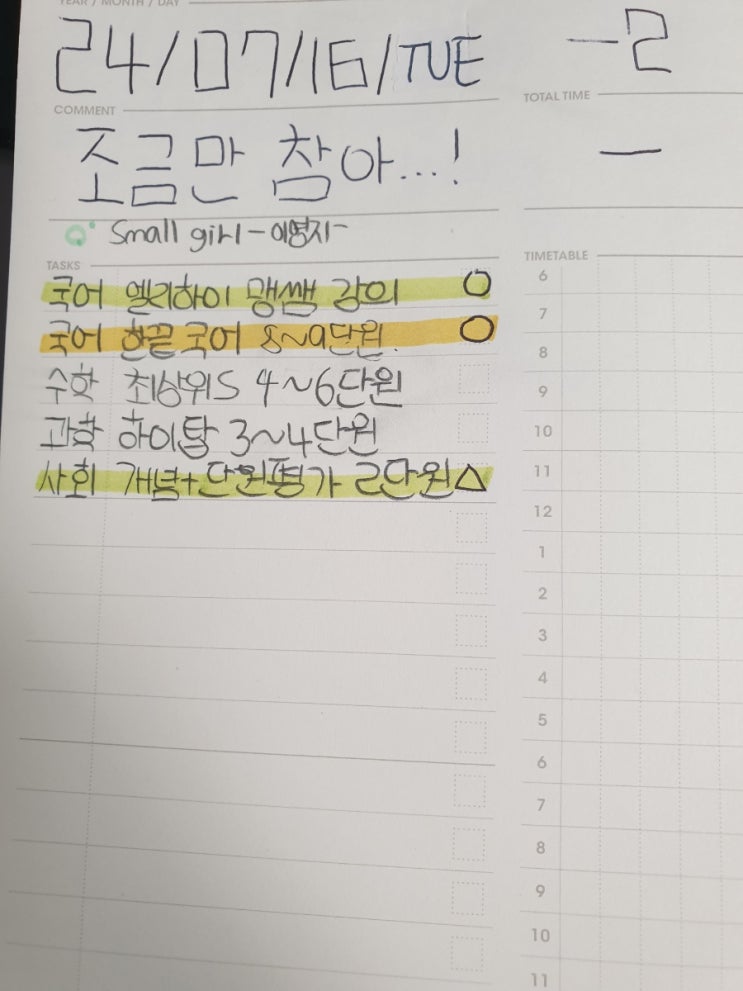 YEAR / MONTH / DAY
24/07/16/TUE
-2
COMMENT
TOTAL TIME
조금만 참아...!
—
Small girl - 이영지 -
TASKS
TIMETABLE
국어 엘리하이 맹쌤 강의 O
국어 한끝 국어 8~9단원. O
수학 최상위S 4~6단원
과학 하이탑 3~4단원
사회 개념+단원평가 2단원 △
6
7
8
9
10
11
12
1
2
3
4
5
6
7
8
9
10
11